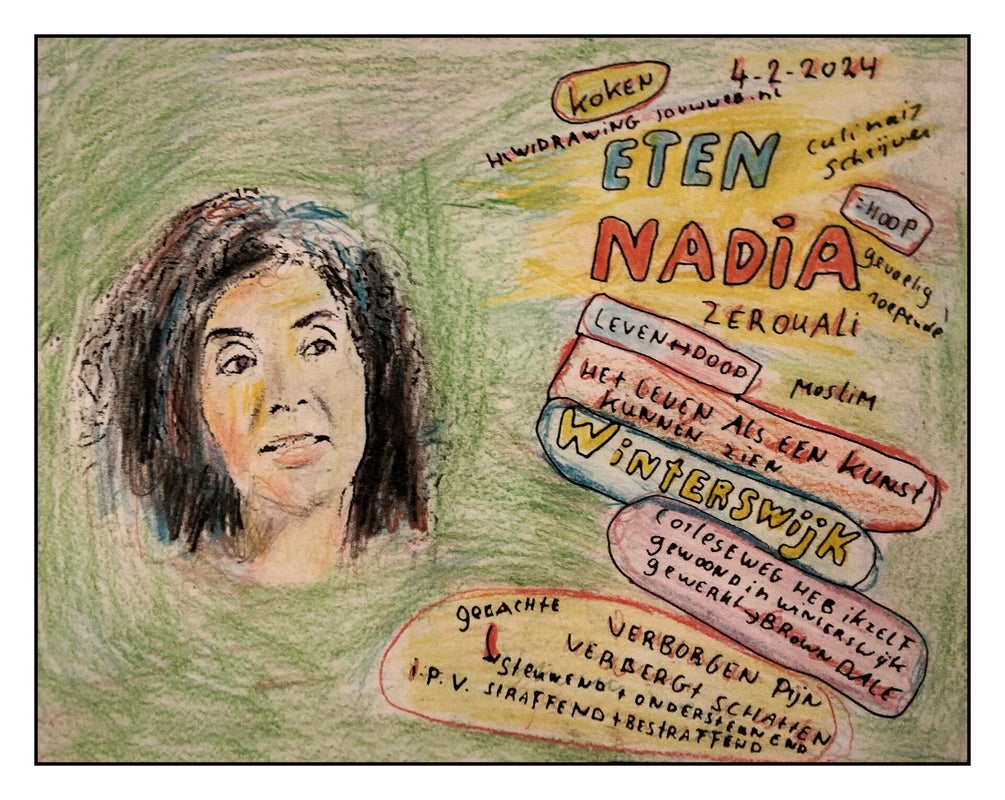 KOKEN
4-2-2024
HEWIDRAWING JOUWWEB.NL
ETEN
culinair
schrijver
=HOOP
NADIA
gevoelig
roepende
ZEROUALI
LEVEN↔DOOD
MOSLIM
HET LEVEN ALS EEN KUNST
KUNNEN ZIEN
WINTERSWIJK
CORLESEWEG HEB IKZELF
gewoond in WINTERSWIJK
gewerkt BROWNDALE
gedACHTE
VERBORGEN PIJN
VERBERGT SCHATTEN
STEUNEND + ONDERSTEUNEND
I.P.V. STRAFFEND + BESTRAFFEND